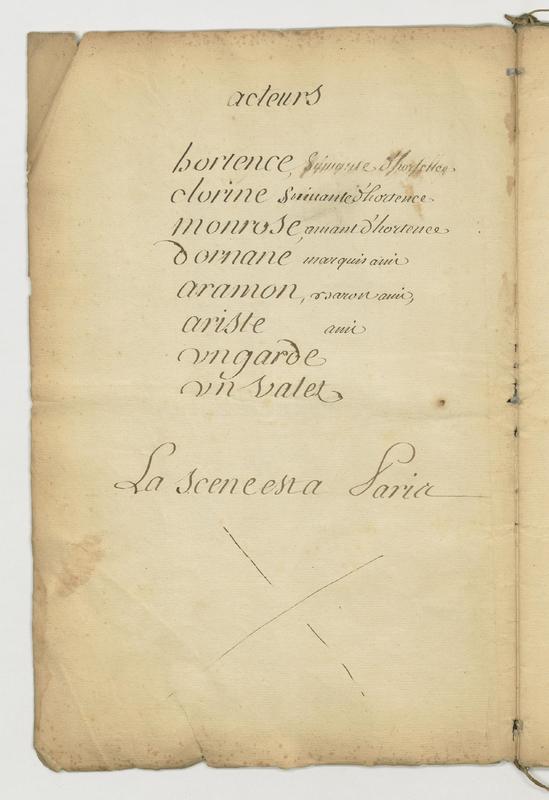 acteurs
hortence,
clorine Suivante d'hortence
monrose, amant d'hortence
dornane marquis ami
aramon, baron ami,
ariste ami
vn garde
vn valet
La scene est a Paris